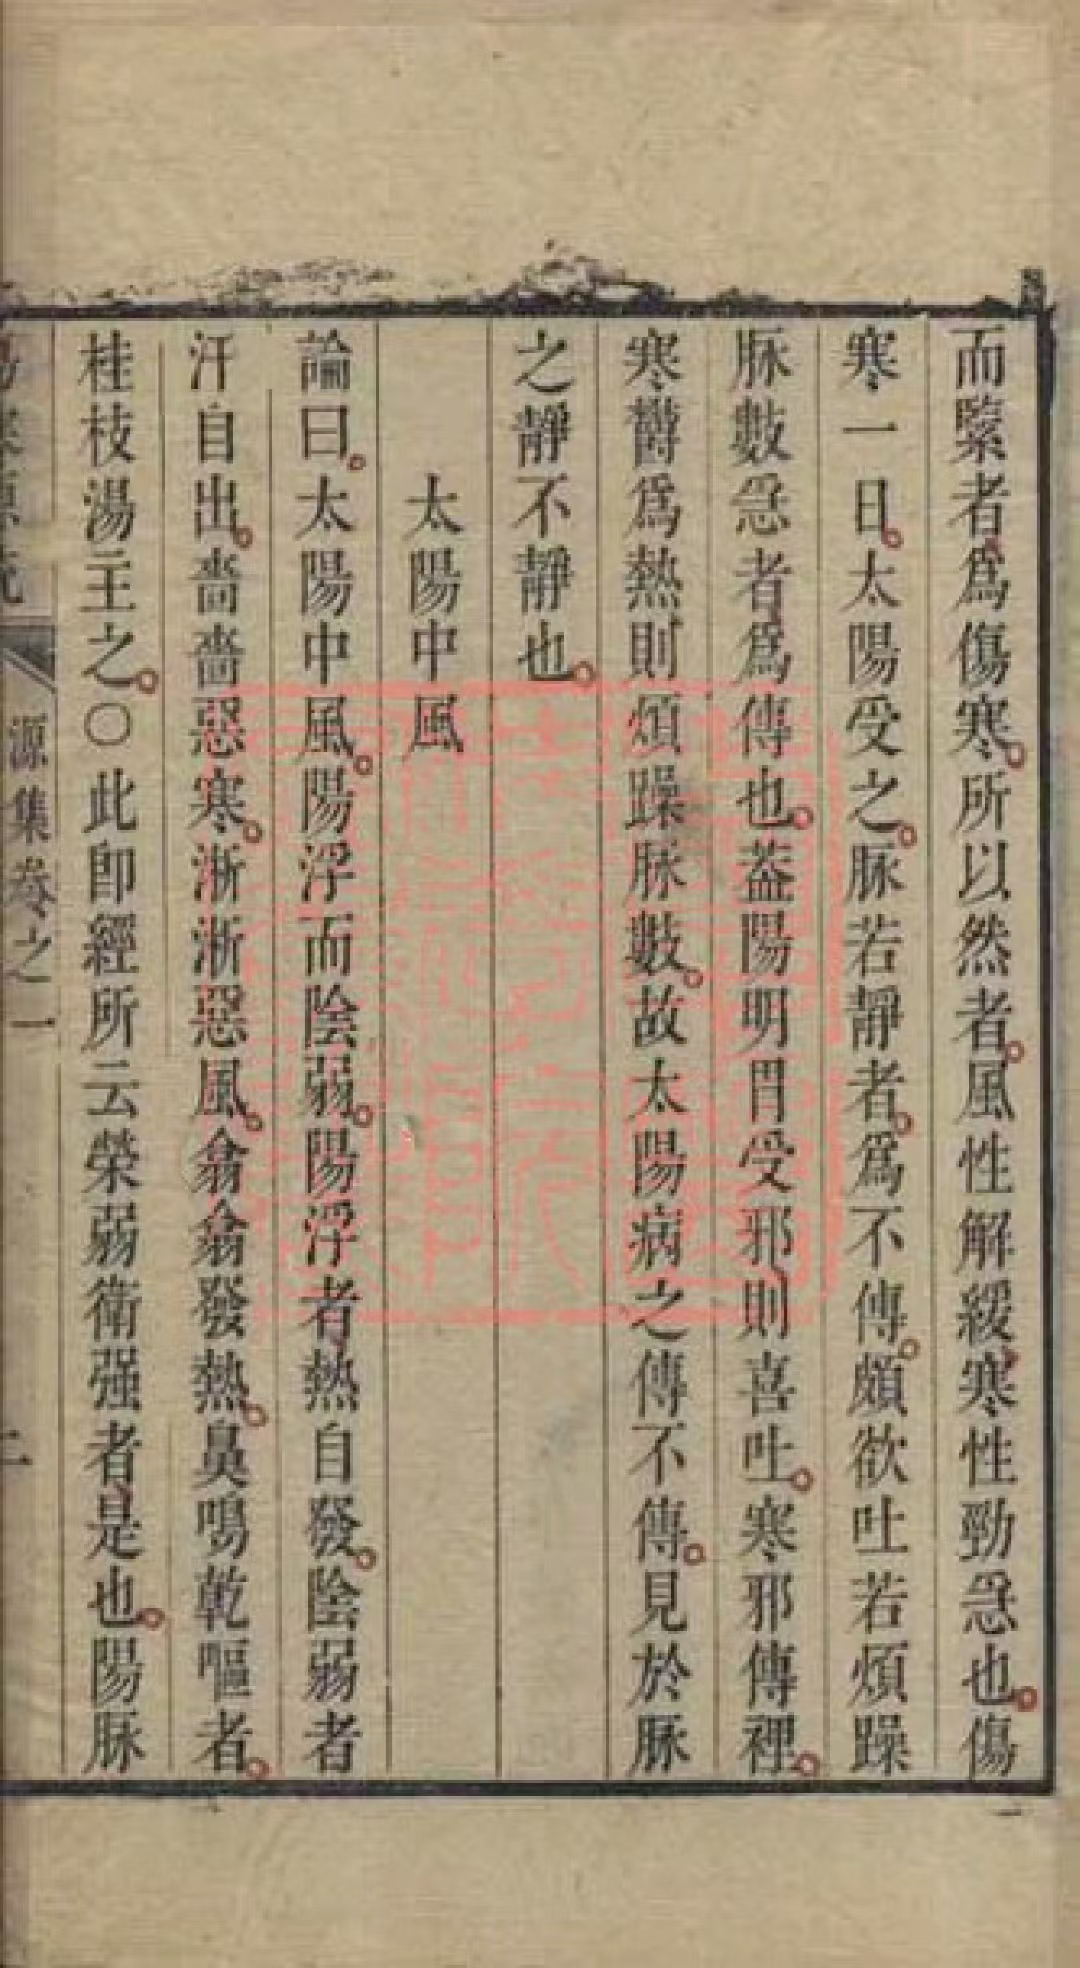 而緊者爲傷寒所以然者風性解緩寒性勁急也傷
寒一日太陽受之脉若靜者爲不傳頗欲吐若煩躁
脉數急者爲傳也葢陽明胃受邪則喜吐寒邪傳裡
寒欝爲熱則煩躁脉數故太陽病之傳不傳見於脉
之靜不靜也
太陽中風
論曰太陽中風陽浮而陰弱陽浮者熱自發陰弱者
汗自出嗇嗇惡寒淅淅惡風翕翕發熱鼻鳴乾嘔者
桂枝湯主之〇此即經所云榮弱衛强者是也陽脉
源集卷之一
二